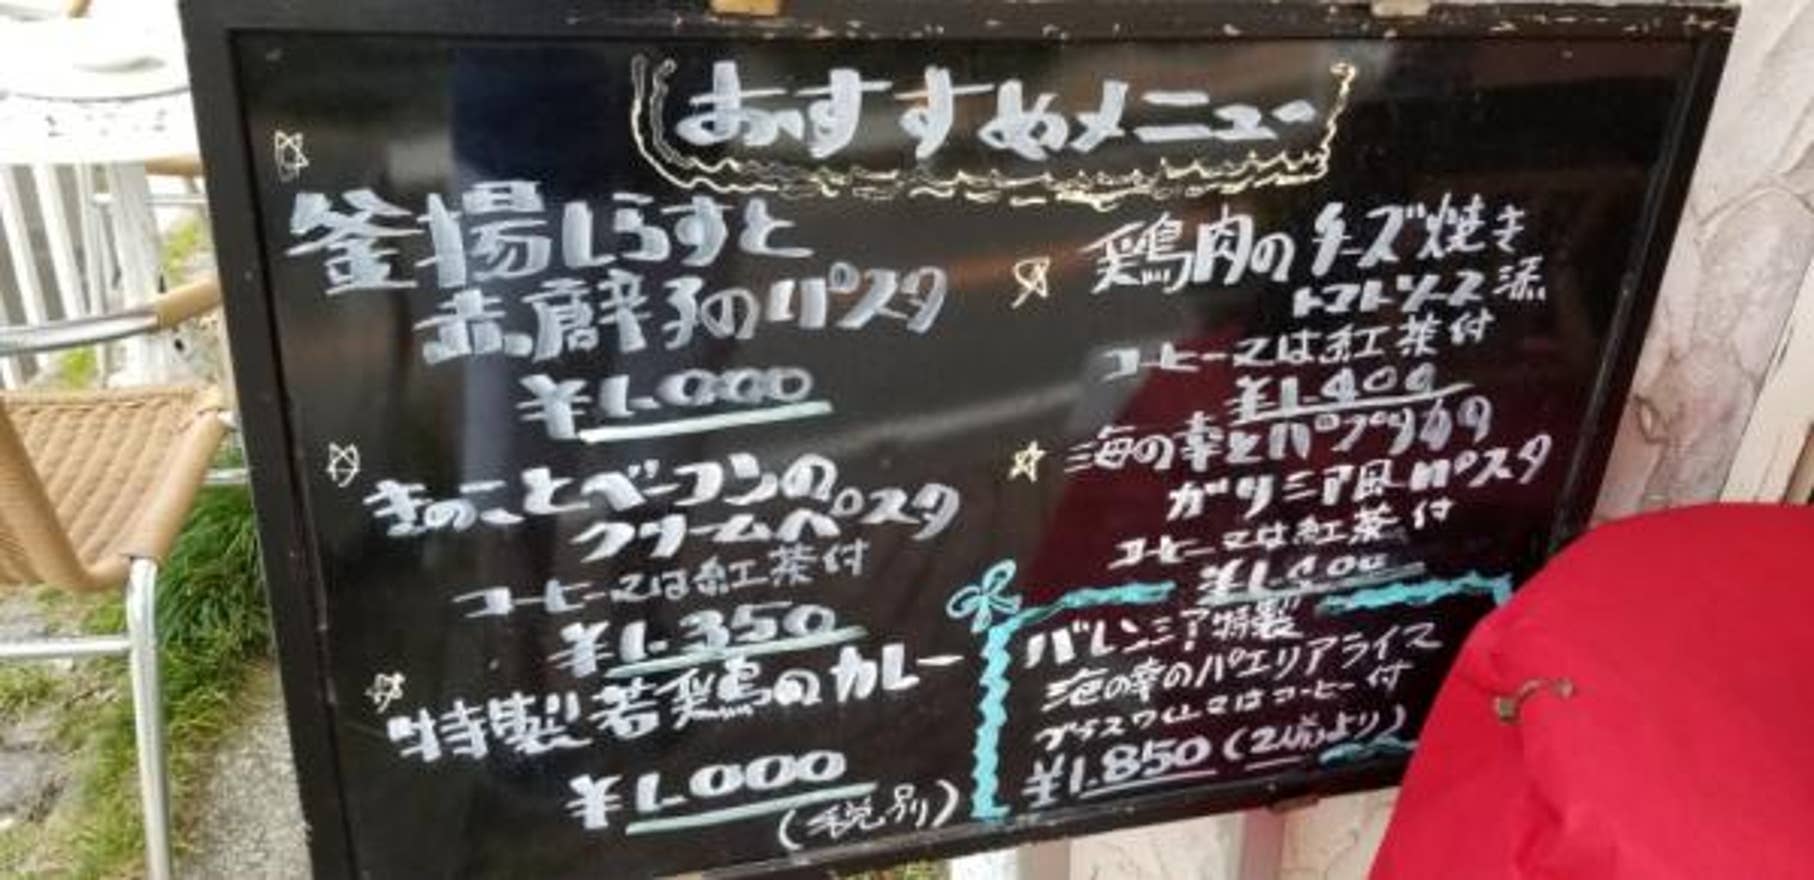 おすすめメニュー
釜揚しらすと
赤唐辛子のパスタ
¥1.000
きのことベーコンの
クリームパスタ
コーヒー又は紅茶付
¥1.350
特製若鶏のカレー
¥1.000
(税別)
鶏肉のチーズ焼き
トマトソース添
コーヒー又は紅茶付
¥1.400
海の幸とパプリカの
ガリシア風パスタ
コーヒー又は紅茶付
バレンシア特製
海の幸のパエリアライス
グラスワイン又はコーヒー付
¥1.850(2人前より)